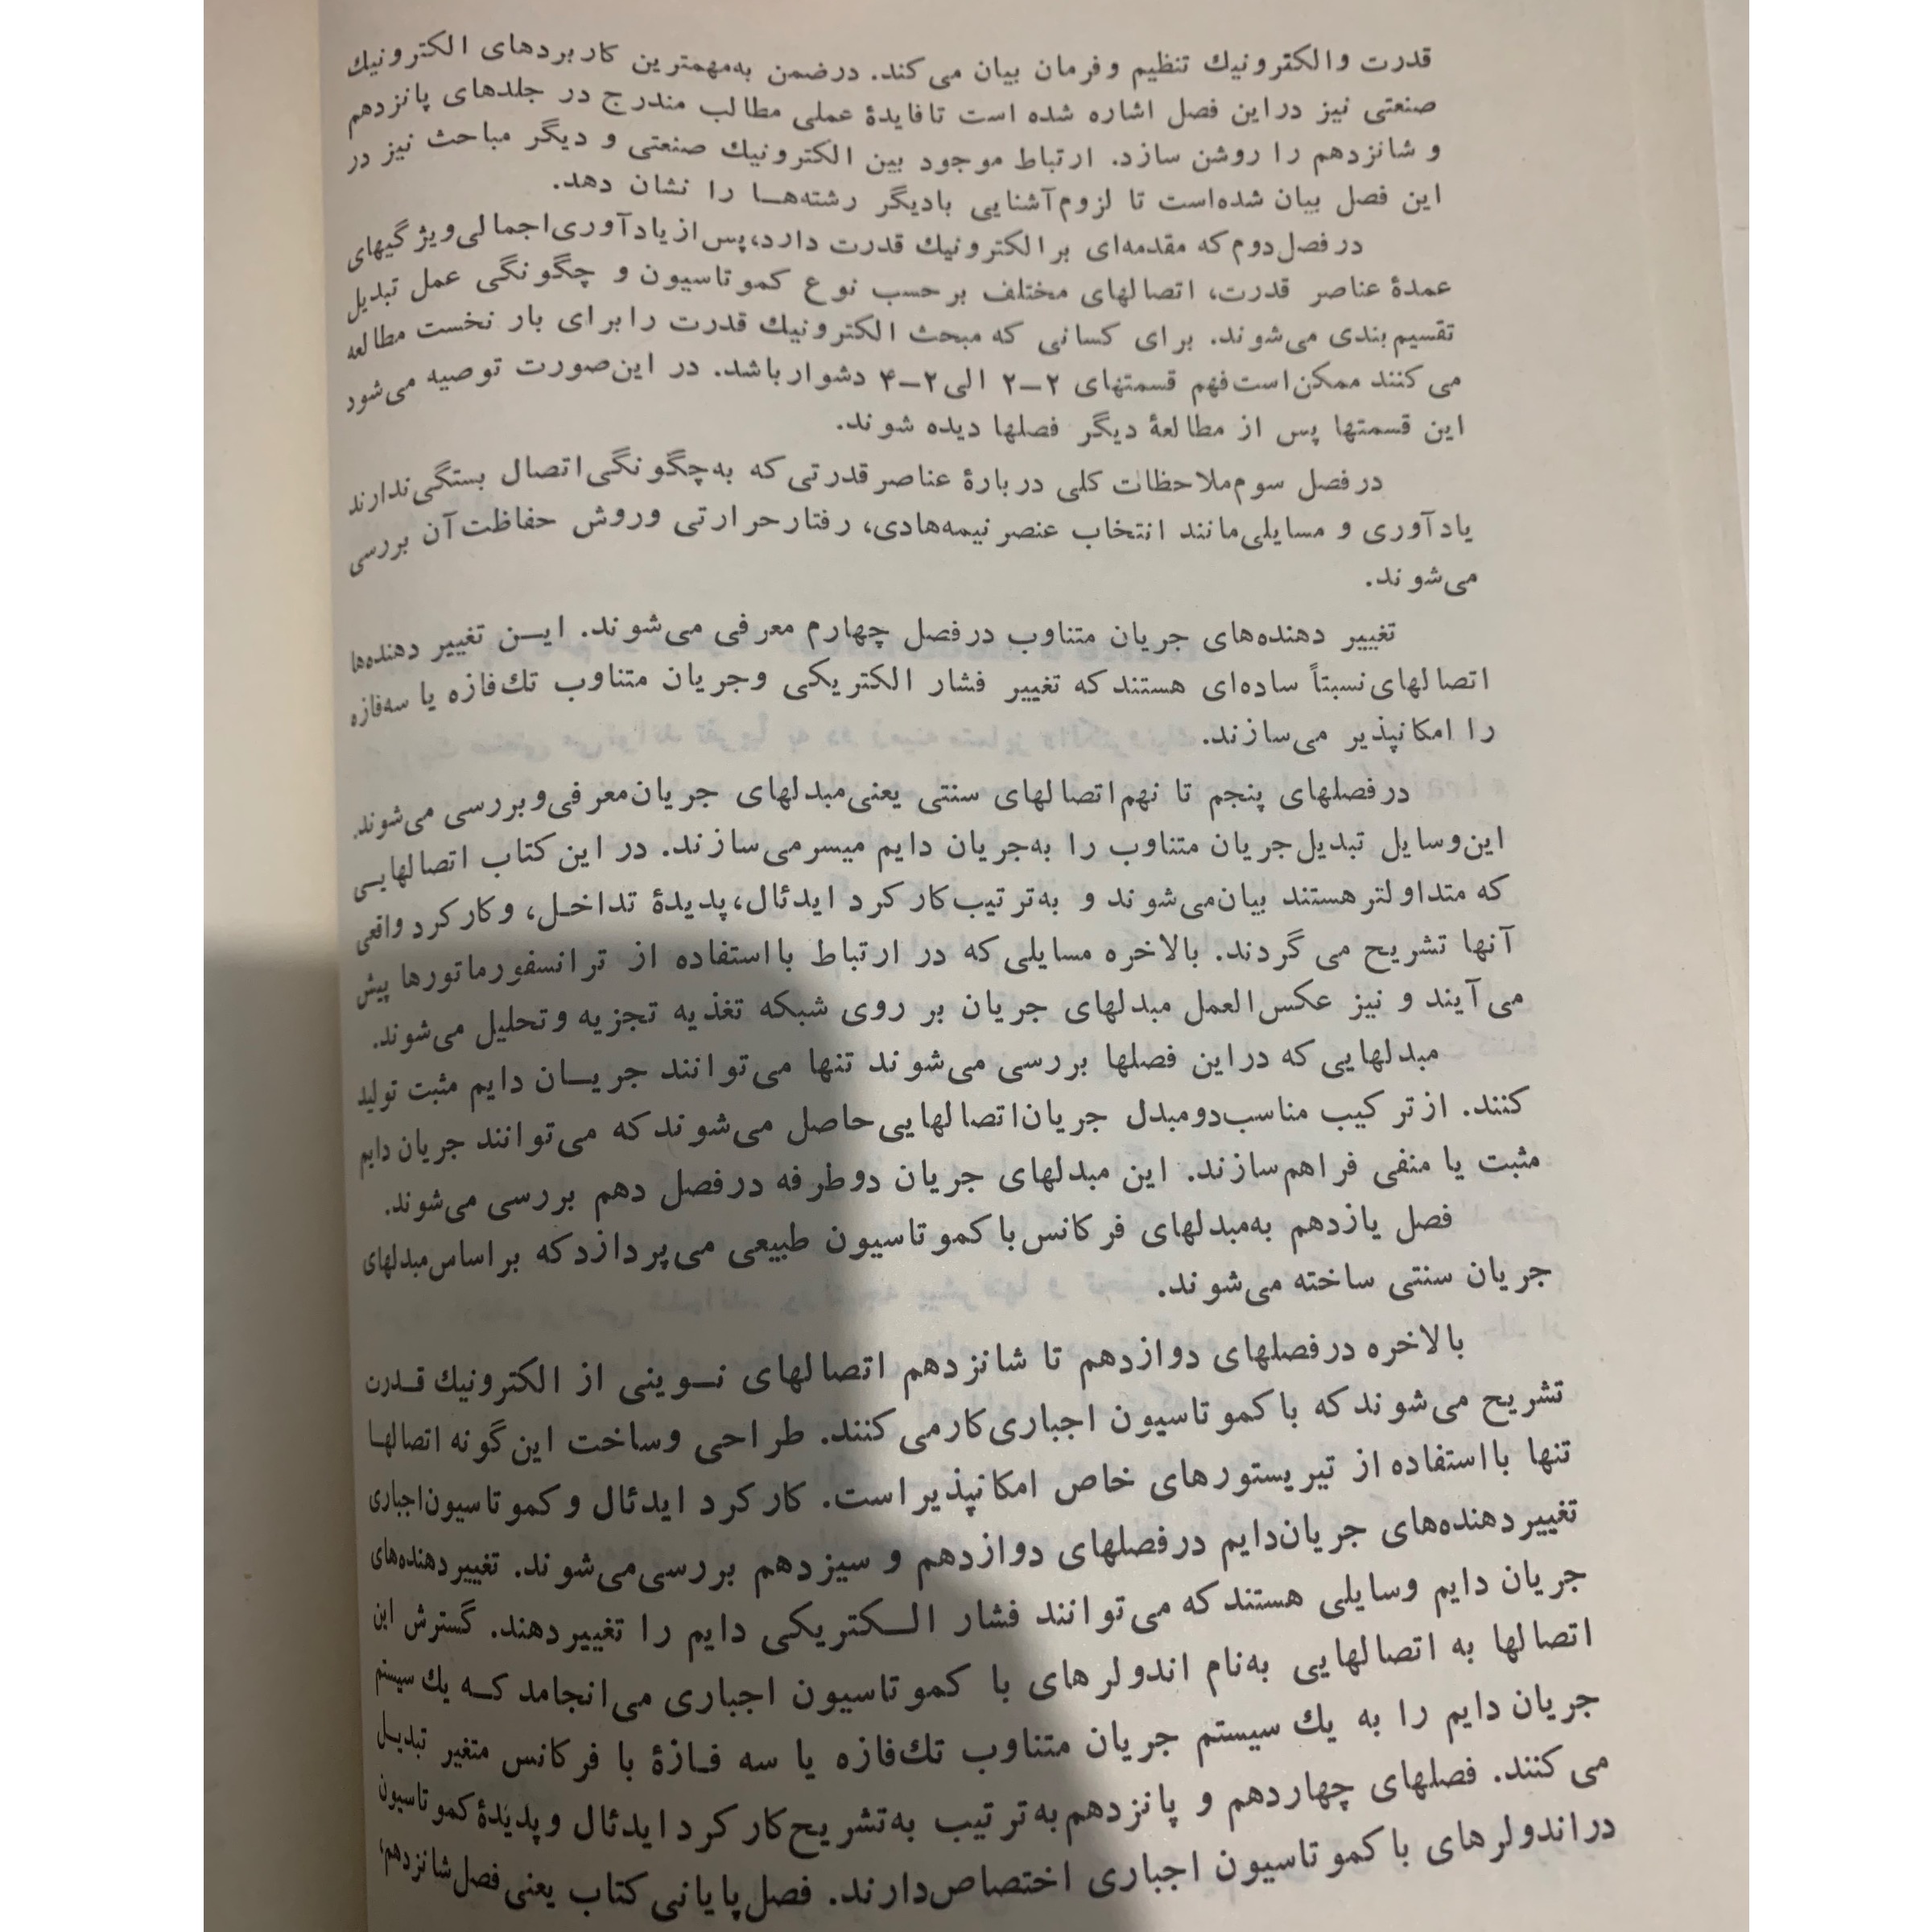 قدرت والکترونیك تنظیم وفرمان بیان می‌کند. درضمن به‌مهمترین کاربردهای الکترونیك
صنعتی نیز دراین فصل اشاره شده است تافایدۀ عملی مطالب مندرج در جلدهای پانزدهم
و شانزدهم را روشن سازد. ارتباط موجود بین الکترونیك صنعتی و دیگر مباحث نیز در
این فصل بیان شده‌است تا لزوم‌آشنایی بادیگر رشته‌هــا را نشان دهد.
در فصل‌دوم که مقدمه‌ای برالکترونیك قدرت دارد،پس‌ازیادآوری‌اجمالی‌ویژگیهای
عمدۀ عناصر قدرت، اتصالهای مختلف برحسب نوع کموتاسیون و چگونگی عمل تبدیل
تقسیم‌بندی می‌شوند. برای کسانی که مبحث الکترونیك قدرت رابرای بار نخست مطالعه
می‌کنند ممکن‌است‌فهم قسمتهای ۲–۲ الی۲–۴ دشوارباشد. در این‌صورت توصیه می‌شود
این قسمتها پس از مطالعۀ دیگر فصلها دیده شوند.
درفصل سوم‌ملاحظات کلی دربارۀ عناصرقدرتی که به‌چگونگی‌اتصال بستگی‌ندارند
یادآوری و مسایلی‌مانند انتخاب عنصرنیمه‌هادی، رفتارحرارتی وروش حفاظت‌آن بررسی
می‌شوند.
تغییر دهنده‌های جریان متناوب درفصل چهارم معرفی می‌شوند. ایــن تغییر دهنده‌ها
اتصالهای‌نسبتاً ساده‌ای هستندکه تغییر فشار الکتریکی وجریان متناوب تك‌فازه یا سه‌فازه
را امکانپذیر می‌سازند.
درفصلهای پنجم تا نهم‌اتصالهای سنتی یعنی‌مبدلهای جریان‌معرفی‌وبررسی می‌شوند.
این‌وسایل تبدیل‌جریان متناوب را به‌جریان دایم میسرمی‌سازند. در این کتاب اتصالهایــی
که متداولترهستند بیان‌می‌شوند و به‌ترتیب‌کارکرد ایدئال،پدیدۀ تداخـل، وکارکرد واقعی
آنها تشریح می گردند. بالاخره مسایلی‌که در ارتباط بااستفاده از ترانسفورماتورها پیش
می‌آیند و نیز عکس‌العمل مبدلهای جریان بر روی شبکه تغذیه تجزیه وتحلیل می‌شوند.
مبدلهایی که دراین فصلها بررسی می‌شوند تنها می‌توانند جریــان دایم مثبت تولید
کنند. ازترکیب مناسب‌دومبدل جریان‌اتصالهایی‌حاصل می‌شوندکه می‌توانند جریان دایم
مثبت یا منفی فراهم‌سازند. این مبدلهای جریان دوطرفه درفصل دهم بررسی می‌شوند.
فصل یازدهم به‌مبدلهای فرکانس‌باکموتاسیون طبیعی می‌پردازدکه براساس‌مبدلهای
جریان سنتی ساخته می‌شوند.
بالاخره درفصلهای دوازدهم تا شانزدهم اتصالهای نــوینی از الکترونیك قــدرت
تشریح می‌شوندکه باکموتاسیون اجباری‌کارمی‌کنند. طراحی وساخت این‌گونه اتصالهـا
تنها بااستفاده‌از تیریستورهای خاص امکانپذیراست. کارکرد ایدئال وکموتاسیون‌اجباری
تغییردهنده‌های جریان‌دایم درفصلهای دوازدهم و سیزدهم بررسی‌می‌شوند. تغییردهنده‌های
جریان دایم وسایلی هستندکه می‌توانند فشار الــکتریکی دایم را تغییردهند. گسترش این
اتصالها به اتصالهایی به‌نام اندولرهای با کموتاسیون اجباری می‌انجامد کــه یك سیستم
جریان دایم را به یك سیستم جریان متناوب تك‌فازه یا سه فـازۀ با فرکانس متغیر تبدیــل
می‌کنند. فصلهای چهاردهم و پانزدهم‌به‌ترتیب به‌تشریح‌کارکردایدئال وپدیدۀکموتاسیون
دراندولرهای باکموتاسیون اجباری اختصاص‌دارند. فصل‌پایانی‌کتاب یعنی‌فصل‌شانزدهم،